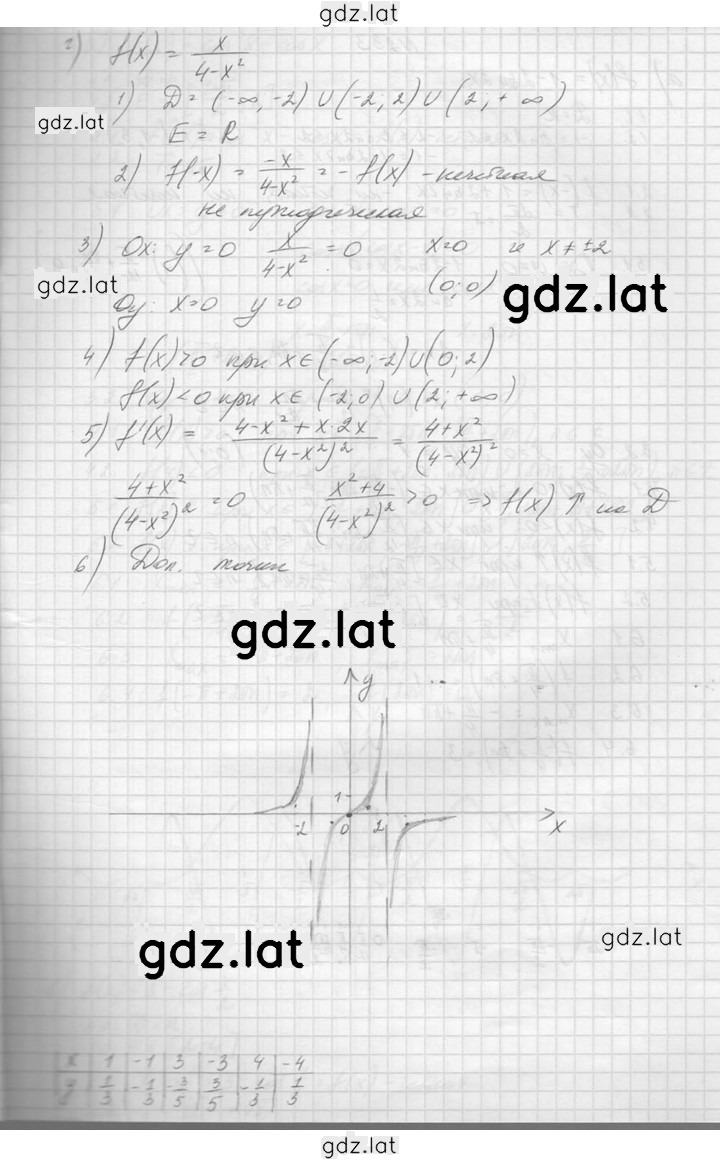 gdz.lat
г) f(x) = x/(4-x²)
1) D = (-∞, -2) ∪ (-2; 2) ∪ (2; +∞)
gdz.lat
E = R
2) f(-x) = -x/(4-x²) = -f(x) - нечетная
не периодическая
3) Ox: y=0 x/(4-x²) = 0 x=0 и x≠±2
gdz.lat
(0; 0)
gdz.lat
Oy: x=0 y=0
4) f(x)>0 при x∈(-∞; -2)∪(0; 2)
f(x)<0 при x∈(-2; 0) ∪ (2; +∞)
5) f'(x) = (4-x²+x·2x)/(4-x²)² = (4+x²)/(4-x²)²
(4+x²)/(4-x²)² = 0 (x²+4)/(4-x²)² > 0 => f(x) ↑ на D
6) Доп. точки
gdz.lat
y
1
-2 0 2 x
gdz.lat
gdz.lat
x 1 -1 3 -3 4 -4
y 1/3 -1/3 -3/5 3/5 -1/3 1/3
gdz.lat